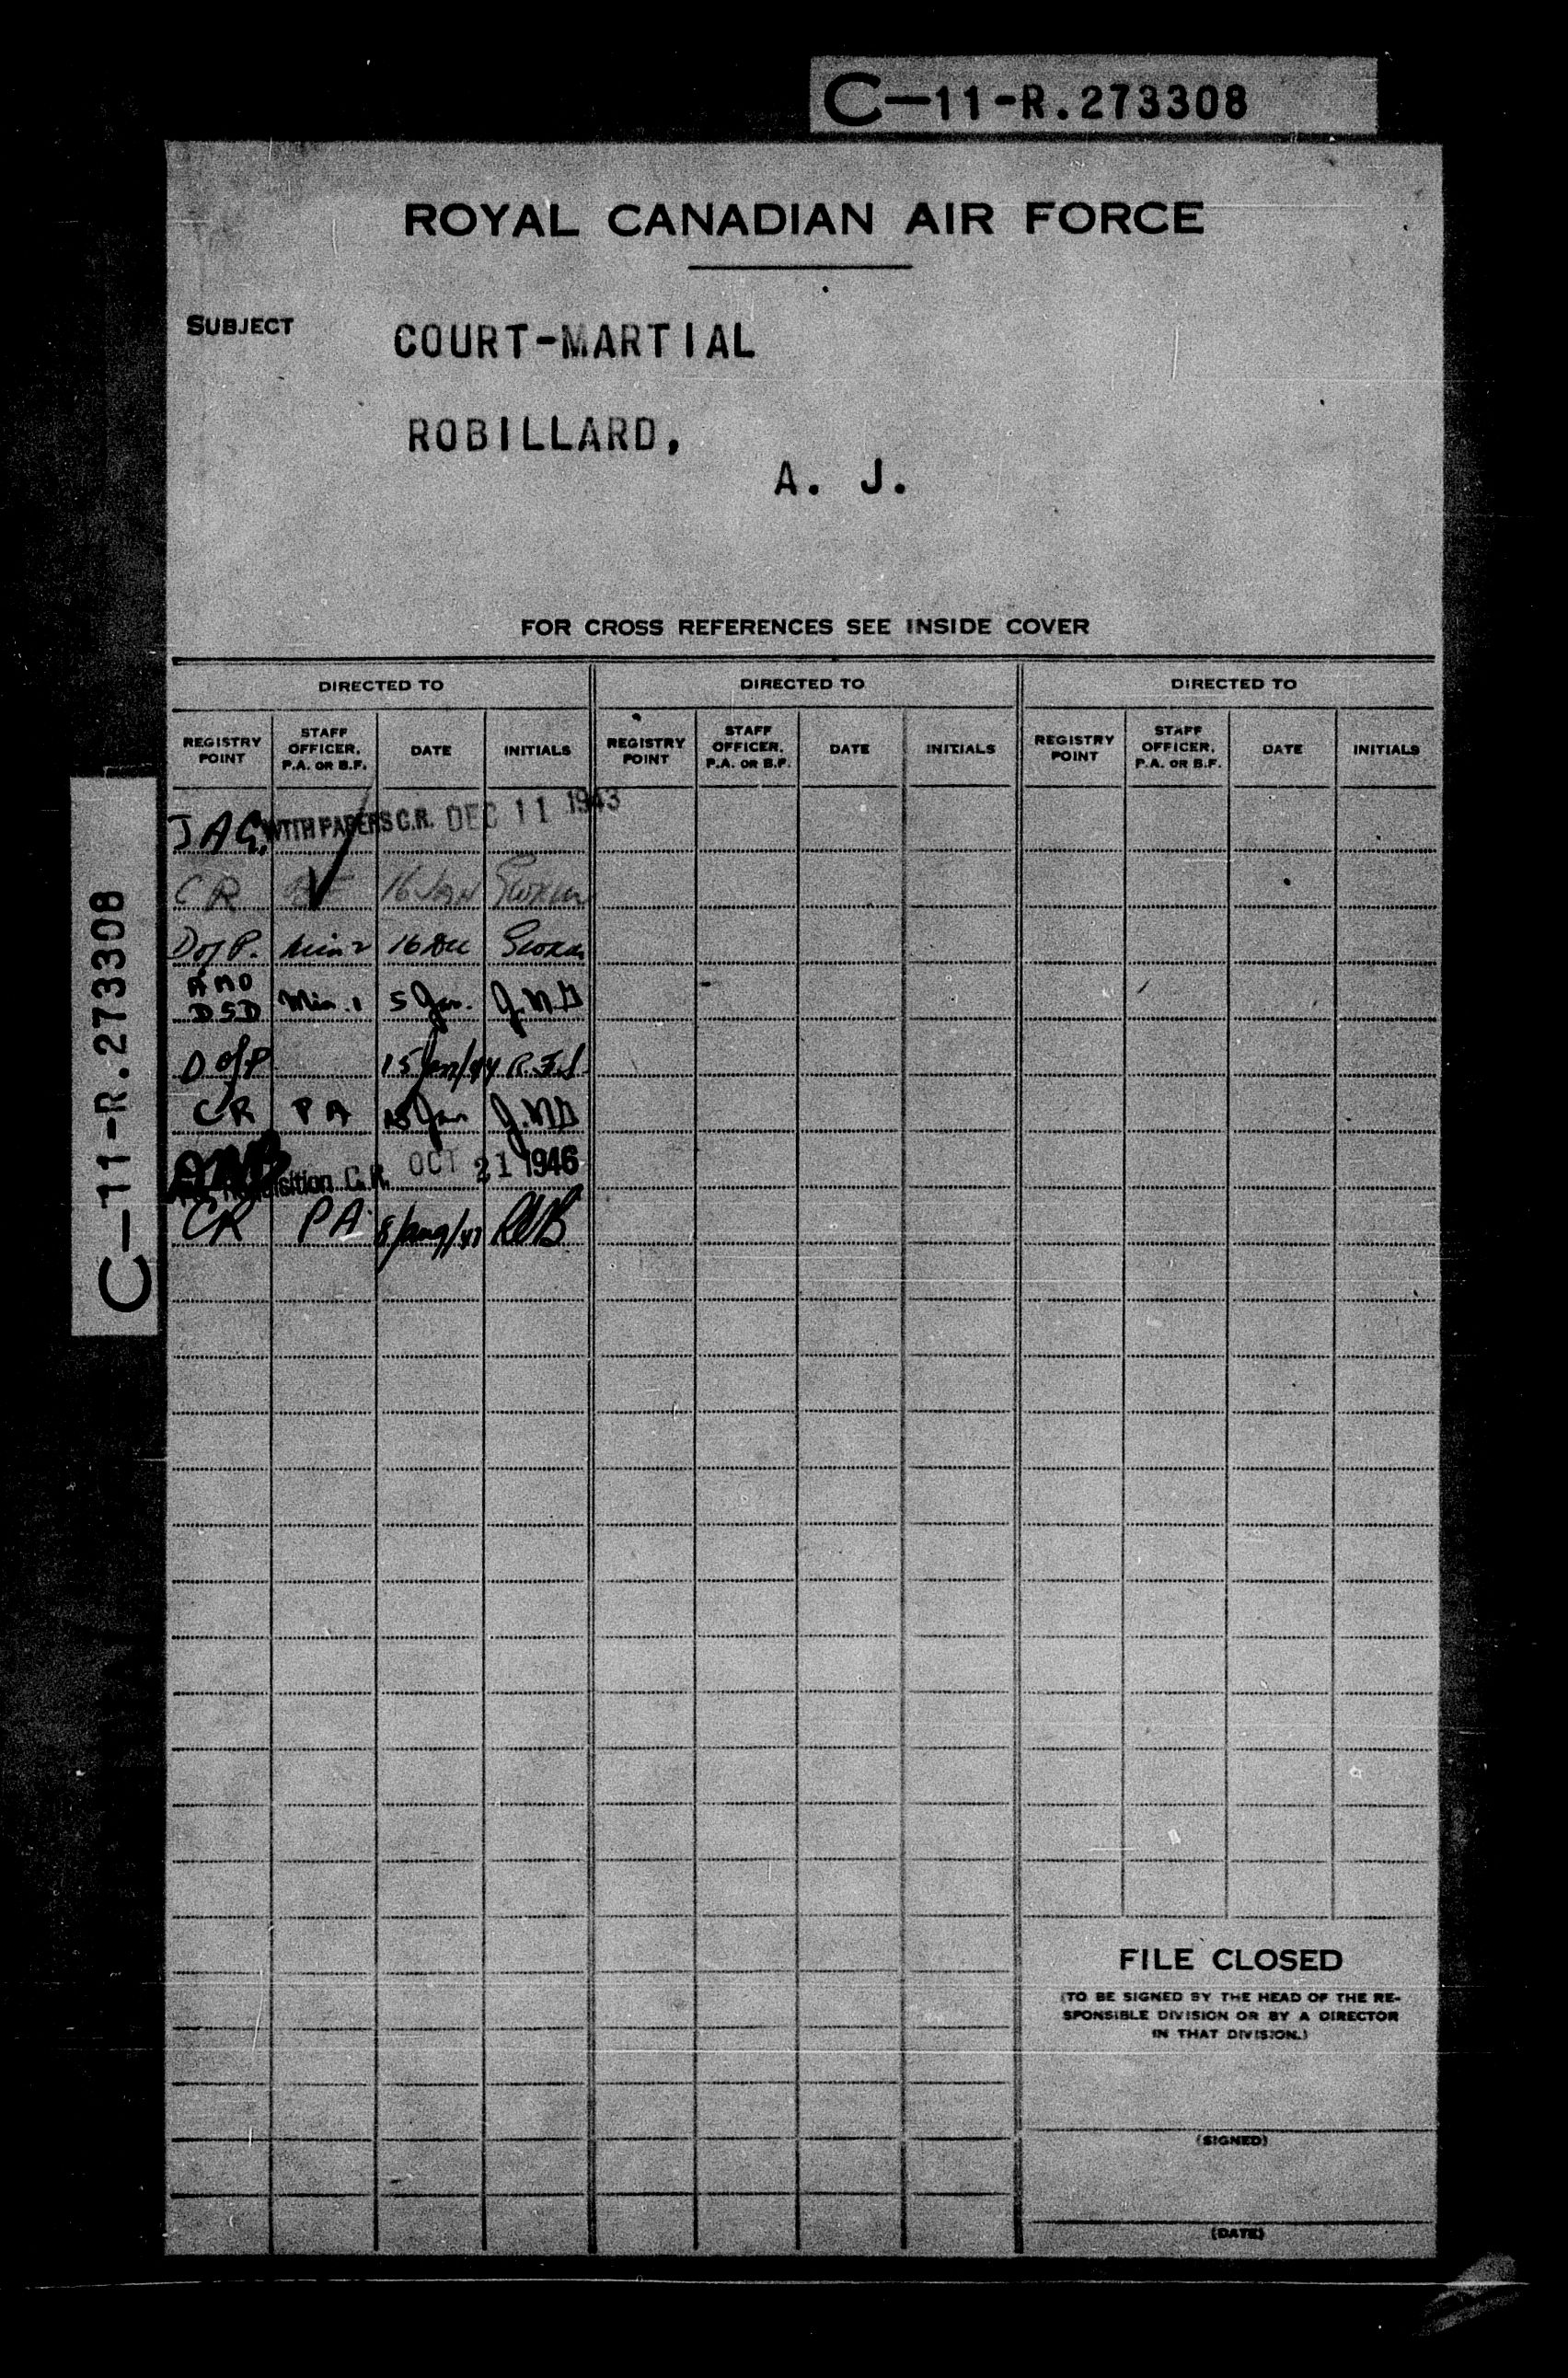 C-11-R.273308
ROYAL CANADIAN AIR FORCE
SUBJECT
COURT-MARTIAL
ROBILLARD,
A. J.
FOR CROSS REFERENCES SEE INSIDE COVER
DIRECTED TO DIRECTED TO DIRECTED TO
REGISTRY POINT STAFF OFFICER, P.A. OR B.F. DATE INITIALS REGISTRY POINT STAFF OFFICER, P.A. OR B.F. DATE INITIALS REGISTRY POINT STAFF OFFICER, P.A. OR B.F. DATE INITIALS
JAG. WITH PAPERS C.R. DEC 11 1943
CR 16 JAN
D of P. Min 2 16 Dec
AMO
DSD Min. 1 5 Jan.
D of P 15 Jan/44
CR PA 18 Jan
C.R. OCT 21 1946
CR PA 8/Aug/47
C-11-R.273308
FILE CLOSED
(TO BE SIGNED BY THE HEAD OF THE RE-
SPONSIBLE DIVISION OR BY A DIRECTOR
IN THAT DIVISION.)
(SIGNED)
(DATE)